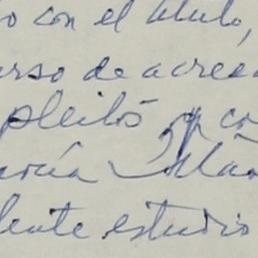 o con el título,
urso de acree
pleitos y co
oría
lente estudio